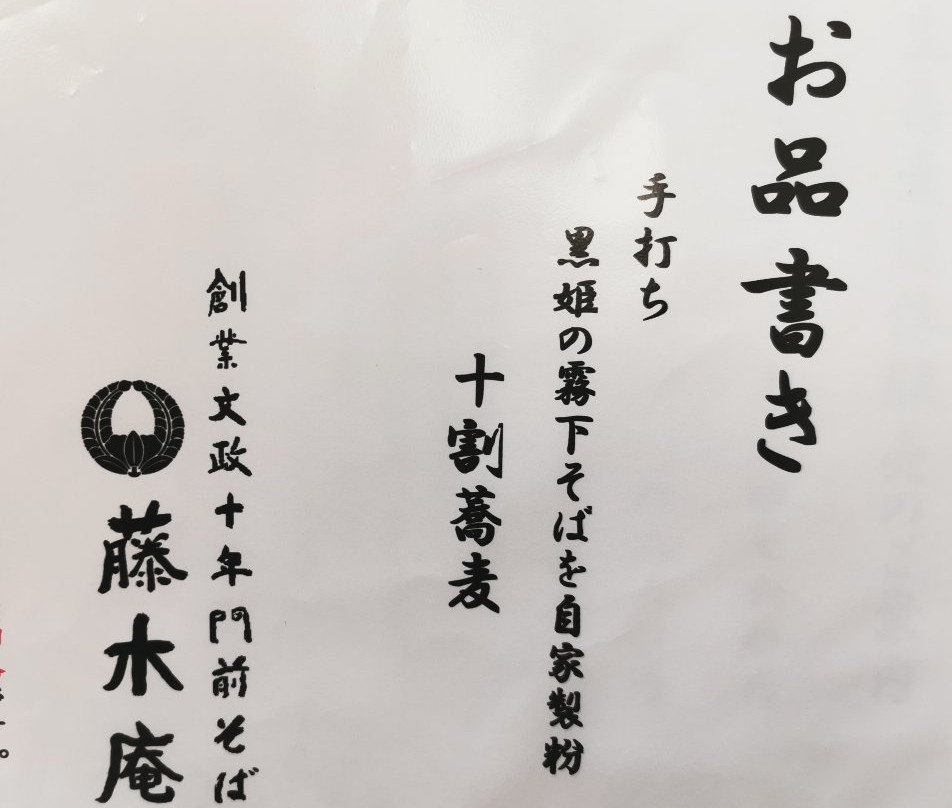 お品書き
手打ち
黒姫の霧下そばを自家製粉
十割蕎麦
創業文政十年門前そば
藤木庵